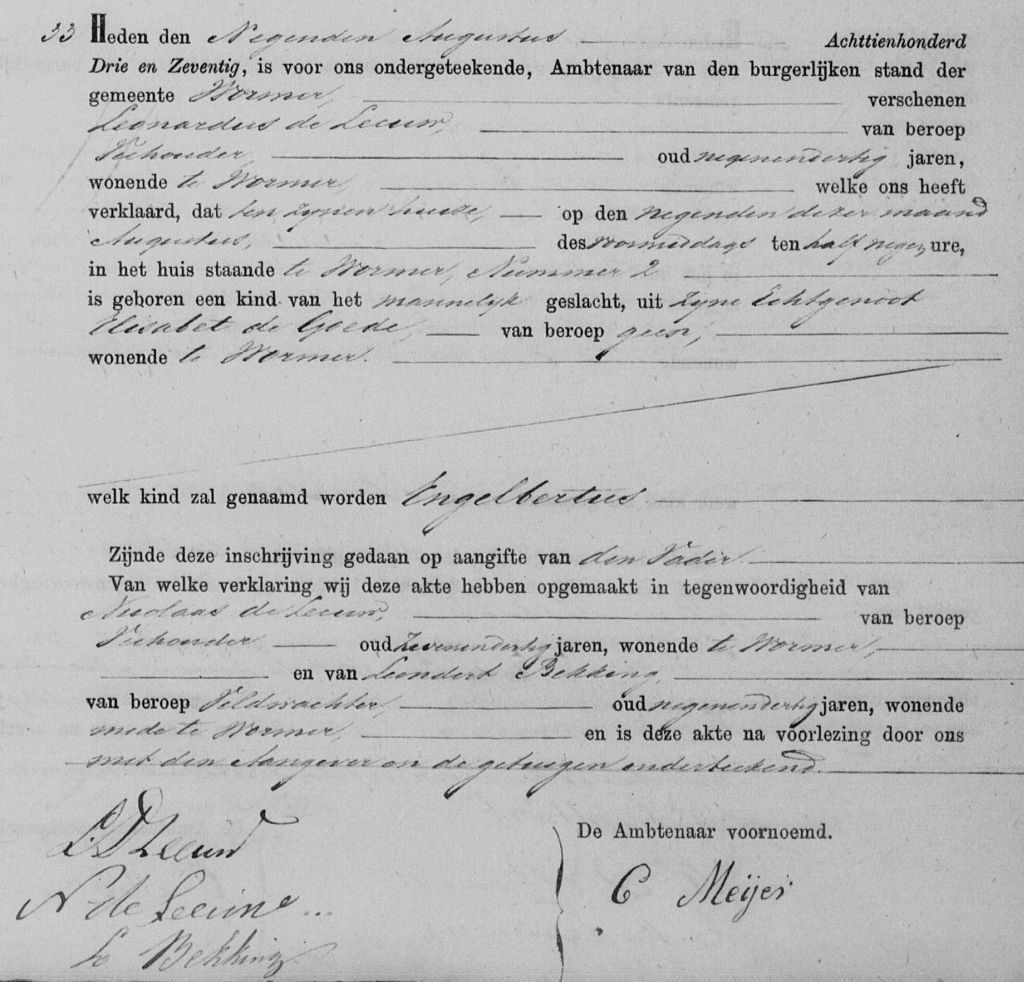 33 Heden den Negenden Augustus Achttienhonderd
Drie en Zeventig, is voor ons ondergeteekende, Ambtenaar van den burgerlijken stand der
gemeente Wormer, verschenen
Leonardus de Leeuw, van beroep
Veehouder, oud negenendertig jaren,
wonende te Wormer, welke ons heeft
verklaard, dat ten zijnen huize, op den negenden dezer maand
Augustus, des voormiddags ten half negen ure,
in het huis staande te Wormer, Nummer 2
is geboren een kind van het mannelijk geslacht, uit zijne Echtgenoot
Elisabet de Goede, van beroep geen,
wonende te Wormer.
welk kind zal genaamd worden Engelbertus
Zijnde deze inschrijving gedaan op aangifte van den Vader.
Van welke verklaring wij deze akte hebben opgemaakt in tegenwoordigheid van
Nicolaas de Leeuw, van beroep
Veehouder oud zevenendertig jaren, wonende te Wormer,
en van Leendert Bekking,
van beroep Veldwachter, oud negenendertig jaren, wonende
mede te Wormer, en is deze akte na voorlezing door ons
met den Aangever en de getuigen onderteekend.
De Ambtenaar voornoemd.
L D Leeuw
C Meijer
N de Leeuw
L Bekking